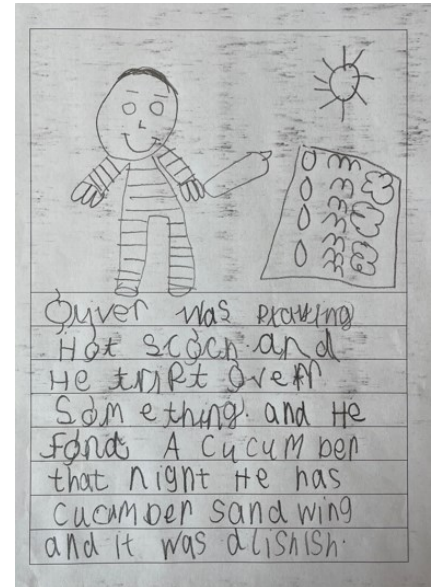 Oyver was playing
Hot scoch and
He tript over
Som ething. and He
fond A cucumber
that night He has
cucumber sand wing
and it was dlishish.